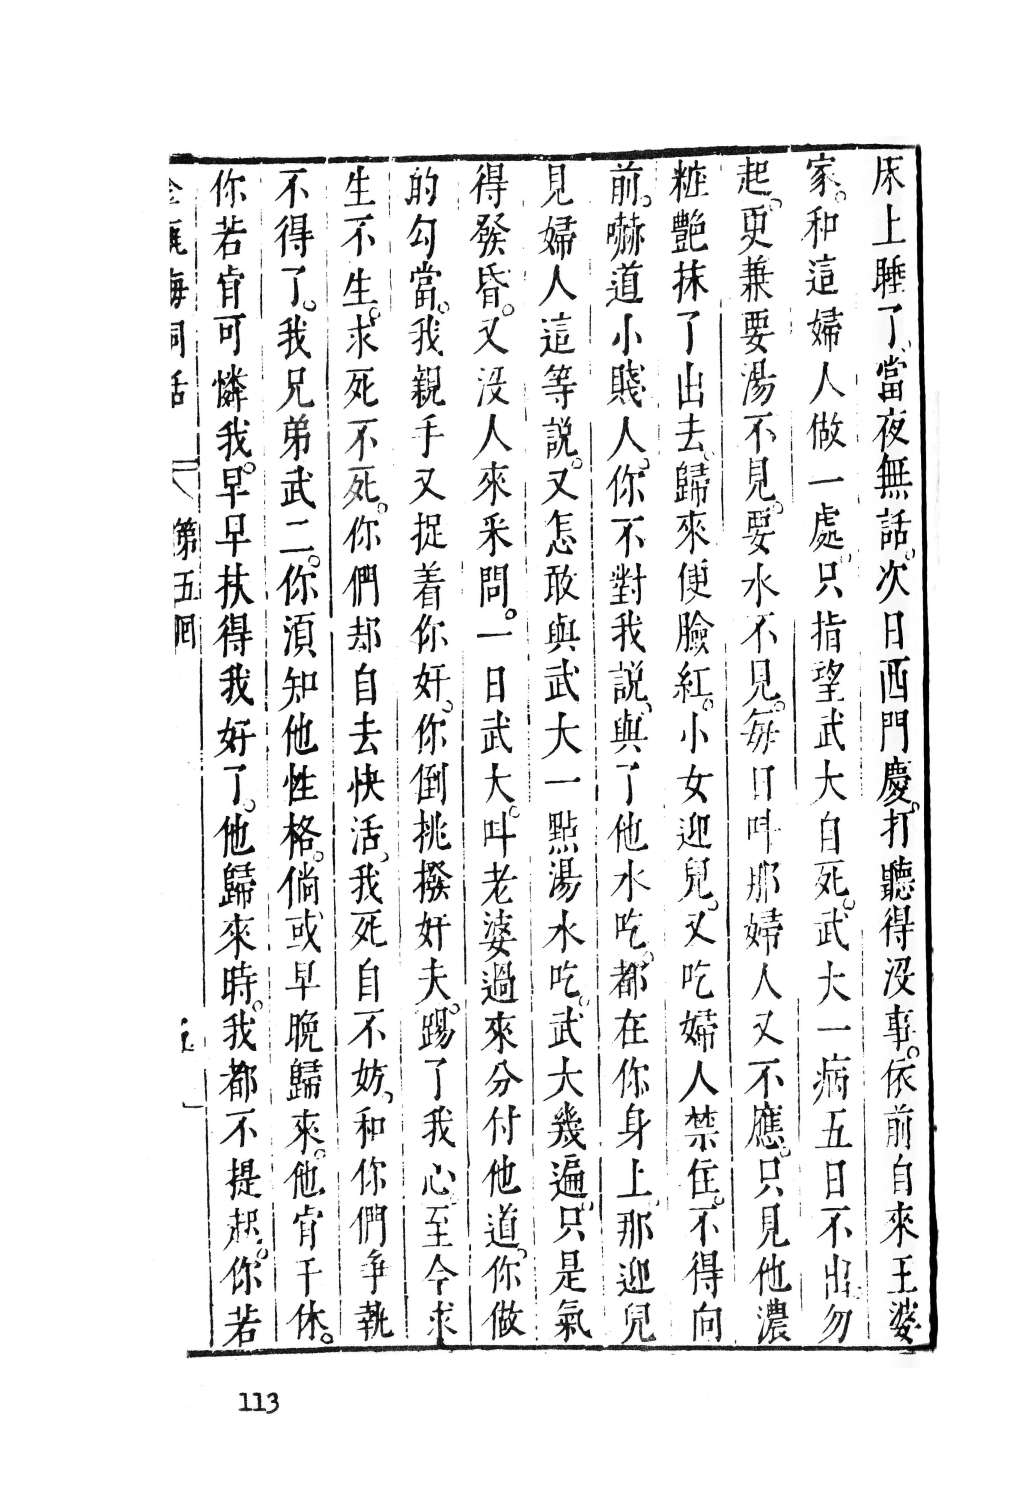 床上睡了。當夜無話。次日西門慶。打聽得没事。依前自來王婆
家。和這婦人做一處。只指望武大自死。武大一病五日不出。勿
起。更兼要湯不見。要水不見。每日叫那婦人又不應。只見他濃
粧艷抹了出去。歸來便臉紅。小女迎兒。又吃婦人禁住。不得向
前。嚇道小賤人。你不對我説。與了他水吃。都在你身上。那迎兒
見婦人這等説。又怎敢與武大一點湯水吃。武大幾遍。只是氣
得發昏。又没人來采問。一日武大。叫老婆過來分付他道。你做
的勾當。我親手又捉着你奸。你倒挑撥奸夫。踢了我心。至今求
生不生。求死不死。你們却自去快活。我死自不妨、和你們爭執
不得了。我兄弟武二。你須知他性格。倘或早晚歸來。他肯干休。
你若肯可憐我。早早扶得我好了。他歸來時。我都不提起。你若
金瓶梅詞話 第五囘
113